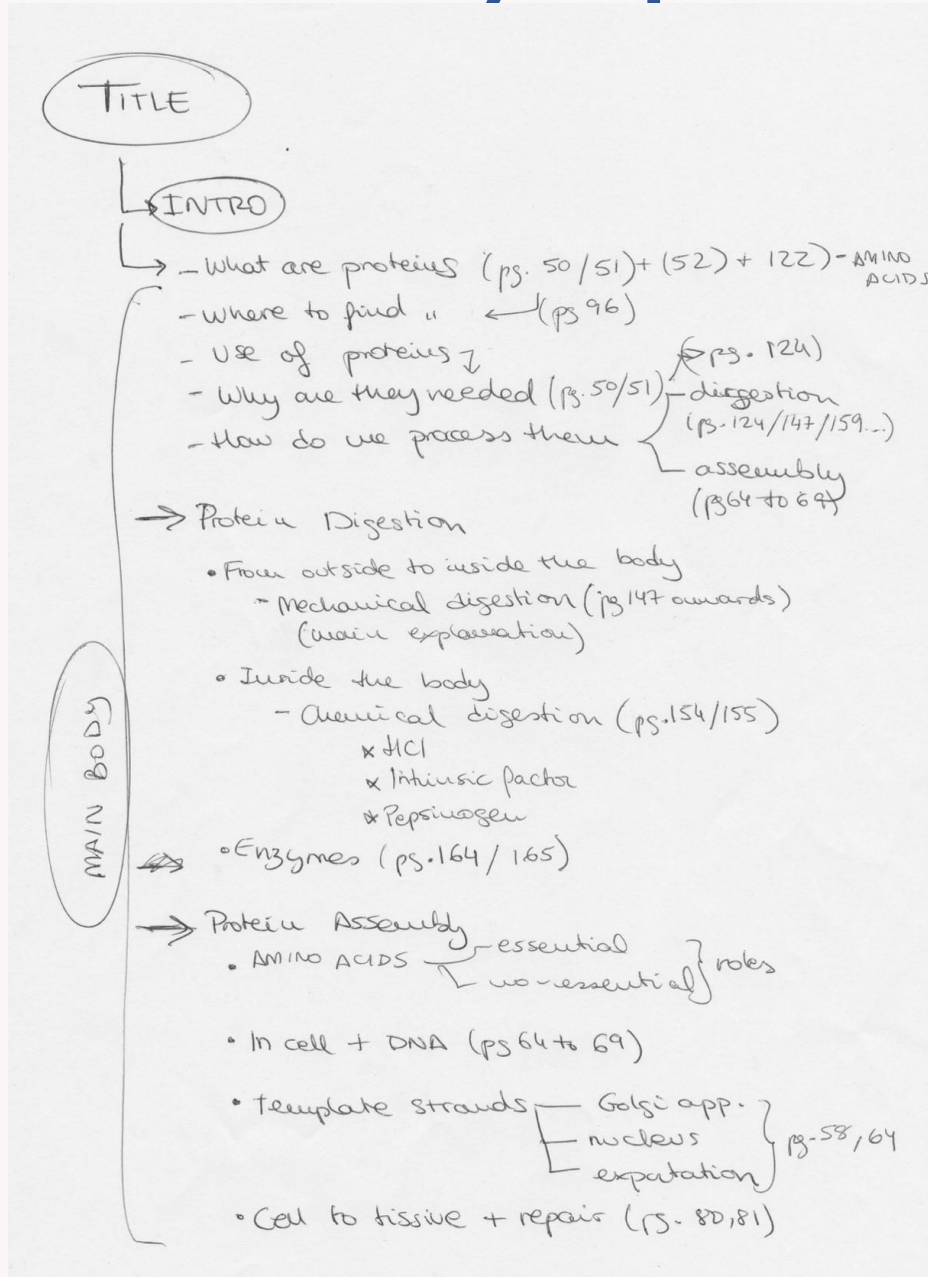 TITLE
INTRO
- What are proteins (pg. 50/51) + (52) + 122) - AMINO ACIDS
- Where to find " (pg 96)
- Use of proteins
- Why are they needed (pg. 50/51) pg. 124)
- How do we process them
- dirgestion
(pg. 124/147/159...)
- assembly
(pg 64 to 69)
→ Protein Digestion
• From outside to inside the body
- Mechanical digestion (pg 147 onwards)
(main explanation)
• Inside the body
- Chemical digestion (pg. 154/155)
* HCl
* Intrinsic factor
* Pepsinogen
• Enzymes (pg. 164/165)
MAIN BODY
→ Protein Assembly
• AMINO ACIDS - essential
- no-essential } roles
• In cell + DNA (pg 64 to 69)
• template strands - Golgi app.
- nucleus } pg. 58, 64
- expotation
• Cell to tissive + repair (pg. 80, 81)